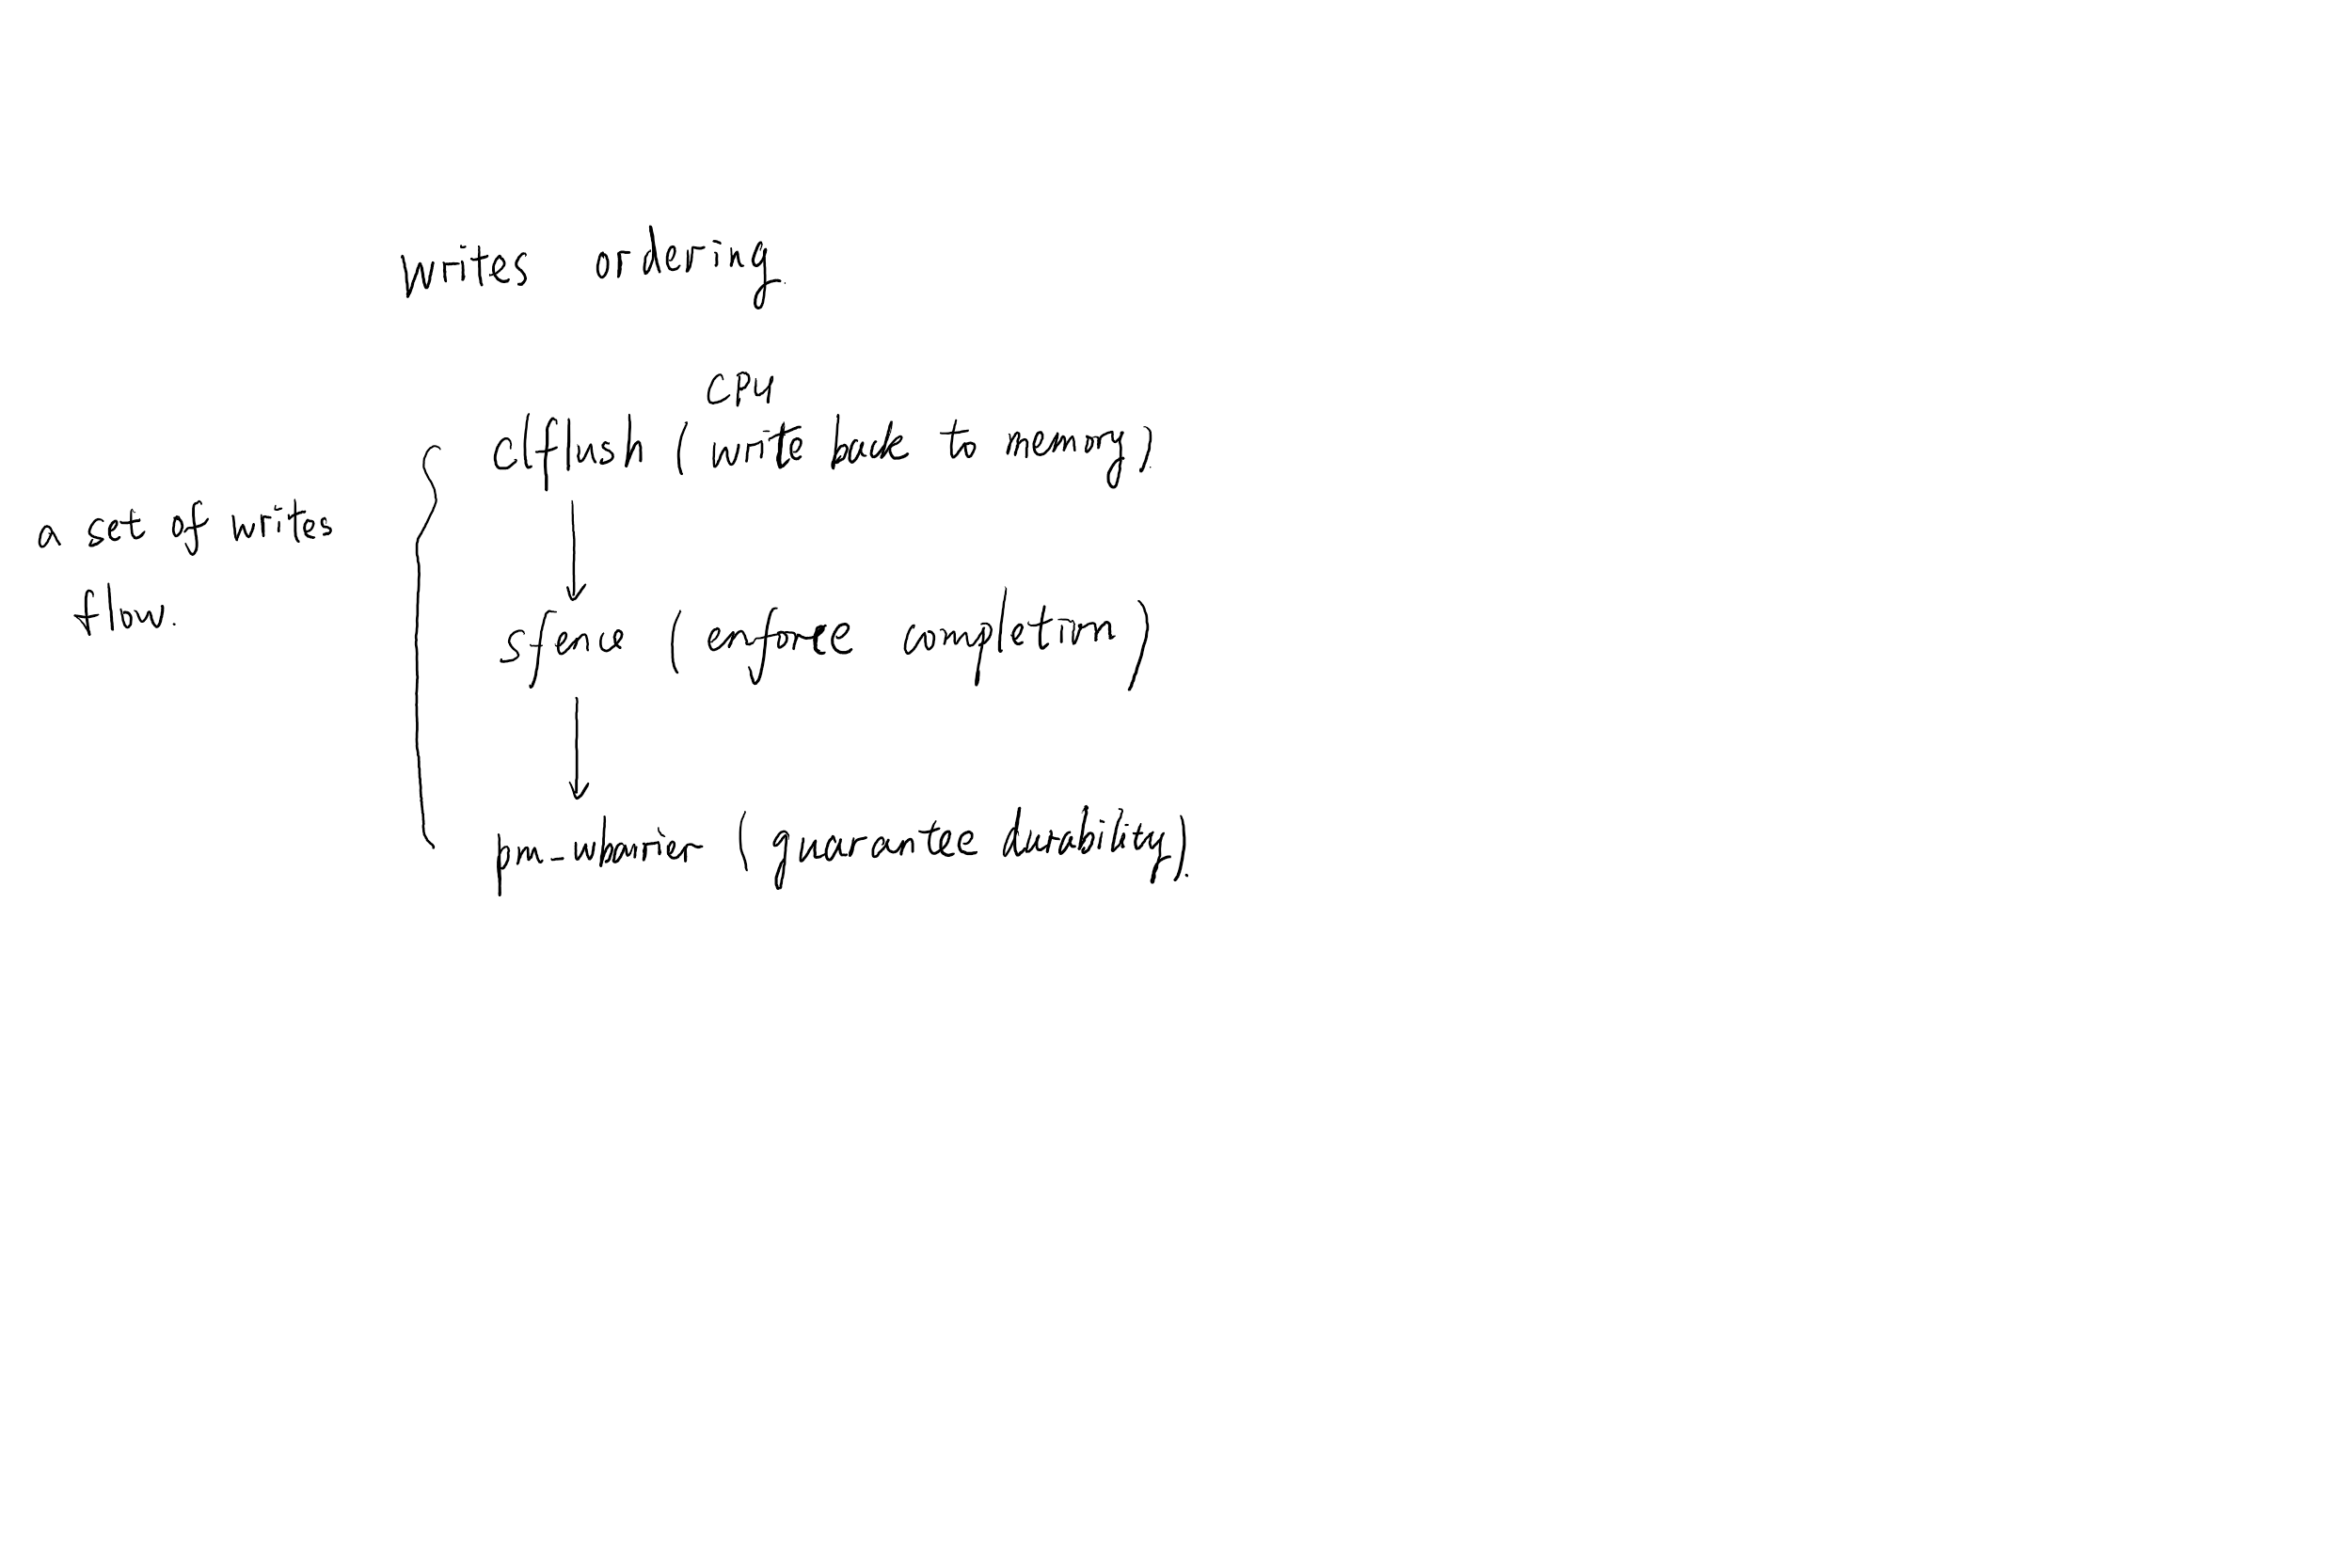 writes ordering.
CPU
clflush (write back to memory).
a set of writes
flow.
sfence (enforce completion)
pm-wbarrier (guarantee durability).